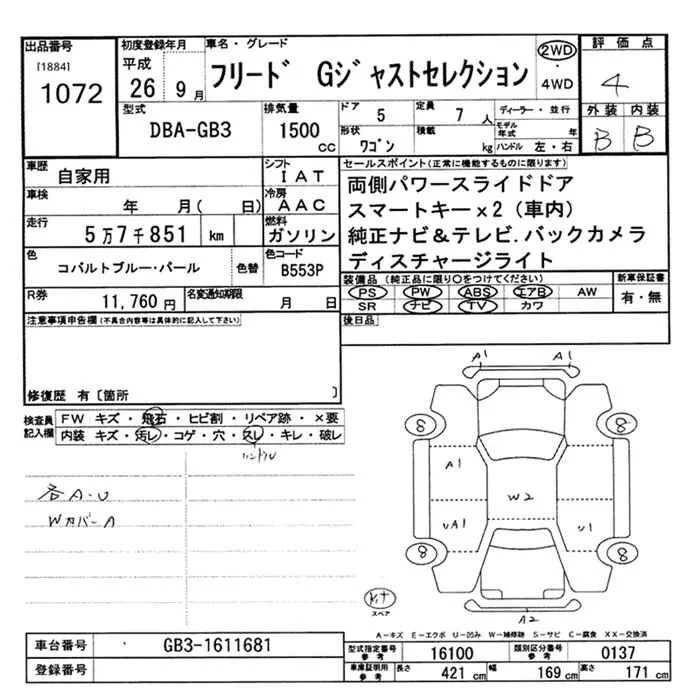 出品番号
[1884]
1072
初度登録年月
平成
26 9月
車名・グレード
フリード Gジャストセレクション
2WD
・
4WD
評価点
4
外装 内装
B B
型式
DBA-GB3
排気量
1500
cc
ドア
5
定員
7人
形状
ワゴン
積載
kg
ディーラー・並行
モデル年式 年
ハンドル 左・右
車歴
自家用
シフト
IAT
車検
年 月( 日)
冷房
AAC
走行
5万7千851 km
燃料
ガソリン
色
コバルトブルー・パール
色替
色コード
B553P
R券
11,760円
名変通知期限
月 日
セールスポイント(正常に機能するものに限ります)
両側パワースライドドア
スマートキーx2(車内)
純正ナビ&テレビ.バックカメラ
ディスチャージライト
装備品(純正品に限り○をつけてください)
PS PW ABS エアB AW
SR ナビ TV カワ
新車保証書
有・無
後日品
注意事項申告欄(不具合内容等は具体的に記入して下さい)
修復歴 有〔箇所 〕
検査員
記入欄
FW キズ・飛石・ヒビ割・リペア跡・×要
内装 キズ・汚レ・コゲ・穴・スレ・キレ・破レ
ハンドル
各A・U
WカバーA
A1 A1
8 8
A1
W2
UA1 U1
8 8
キット
スペア
A2
A-キズ E-エクボ U-凹み W-補修跡 S-サビ C-腐食 XX-交換済
車台番号
GB3-1611681
登録番号
型式指定番号
参考
16100
類別区分番号
参考
0137
車庫証明用
参考
長さ
421cm
幅
169cm
高さ
171cm